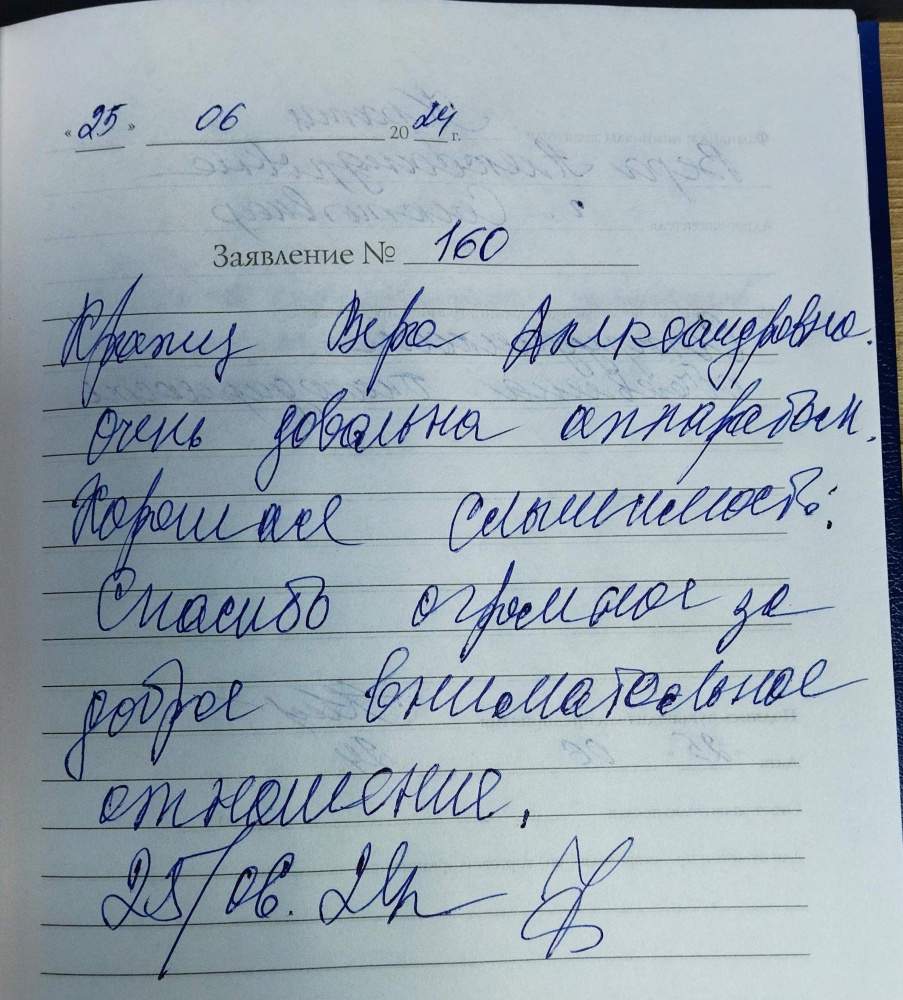 «25» 06 2024 г.
Заявление № 160
Вера Александровна.
очень довольна аппаратом.
Хорошая слышимость.
Спасибо огромное за
доброе внимательное
отношение.
25/06. 24г